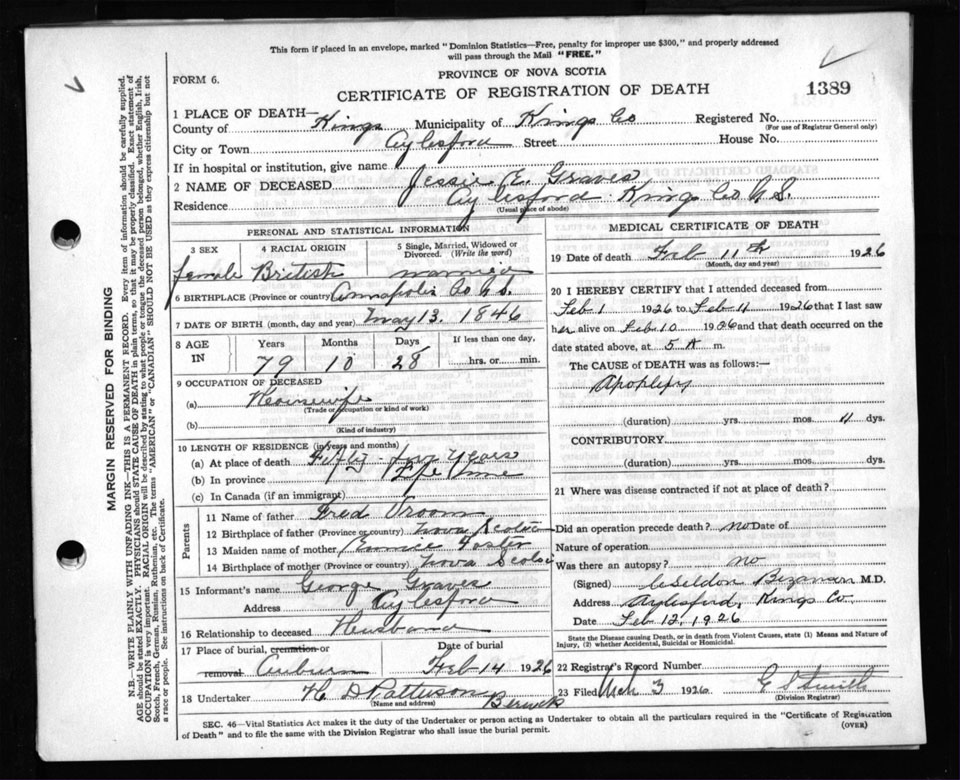 This form if placed in an envelope, marked "Dominion Statistics—Free, penalty for improper use $300," and properly addressed
will pass through the Mail "FREE."
FORM 6.
PROVINCE OF NOVA SCOTIA
CERTIFICATE OF REGISTRATION OF DEATH
1389
1 PLACE OF DEATH—
County of Kings Municipality of Kings Co Registered No.
(For use of Registrar General only)
City or Town Aylesford Street House No.
If in hospital or institution, give name
2 NAME OF DECEASED Jessie E. Graves
Residence Aylesford Kings Co N.S.
(Usual place of abode)
PERSONAL AND STATISTICAL INFORMATION
3 SEX 4 RACIAL ORIGIN 5 Single, Married, Widowed or Divorced. (Write the word)
female British married
6 BIRTHPLACE (Province or country) Annapolis Co N.S.
7 DATE OF BIRTH (month, day and year) May 13. 1846
8 AGE IN Years Months Days If less than one day,
79 10 28 hrs. or min.
9 OCCUPATION OF DECEASED
(a) Housewife
(Trade or occupation or kind of work)
(b)
(Kind of industry)
10 LENGTH OF RESIDENCE (in years and months)
(a) At place of death Fifty- Years
(b) In province Life time
(c) In Canada (if an immigrant)
Parents
11 Name of father Fred Vroom
12 Birthplace of father (Province or country) Nova Scotia
13 Maiden name of mother Foster
14 Birthplace of mother (Province or country) Nova Scotia
15 Informant's name George Graves
Address Aylesford
16 Relationship to deceased Husband
17 Place of burial, cremation or removal Date of burial
Auburn Feb 14 1926
18 Undertaker H D Patterson Berwick
(Name and address)
MEDICAL CERTIFICATE OF DEATH
19 Date of death Feb 11th 1926
(Month, day and year)
20 I HEREBY CERTIFY that I attended deceased from
Feb 1 1926 to Feb 11 1926 that I last saw
her alive on Feb 10 1926 and that death occurred on the
date stated above, at 5 A m.
The CAUSE OF DEATH was as follows:—
Apoplexy
(duration) yrs. mos. 11 dys.
CONTRIBUTORY
(duration) yrs. mos. dys.
21 Where was disease contracted if not at place of death?
Did an operation precede death? no Date of
Nature of operation
Was there an autopsy? no
(Signed) M.D.
Address Aylesford, Kings Co
Date Feb 12, 1926
State the Disease causing Death, or in death from Violent Causes, state (1) Means and Nature of
Injury, (2) whether Accidental, Suicidal or Homicidal.
22 Registrar's Record Number
23 Filed Mch 3 1926 Smith
(Division Registrar)
SEC. 46—Vital Statistics Act makes it the duty of the Undertaker or person acting as Undertaker to obtain all the particulars required in the "Certificate of Registration
of Death" and to file the same with the Division Registrar who shall issue the burial permit.
(OVER)
MARGIN RESERVED FOR BINDING
N.B.—WRITE PLAINLY WITH UNFADING INK—THIS IS A PERMANENT RECORD. Every item of information should be carefully supplied.
AGE should be stated EXACTLY. PHYSICIANS should STATE CAUSE OF DEATH in plain terms, so that it may be properly classified. Exact statement of
OCCUPATION is very important. RACIAL ORIGIN will be described by stating to what people or tongue the deceased person belonged, whether English, Irish,
Scotch, French, German, Russian, Ruthenian, etc. The terms "AMERICAN" or "CANADIAN" SHOULD NOT BE USED as they express citizenship but not
a race or people. See instructions on back of Certificate.